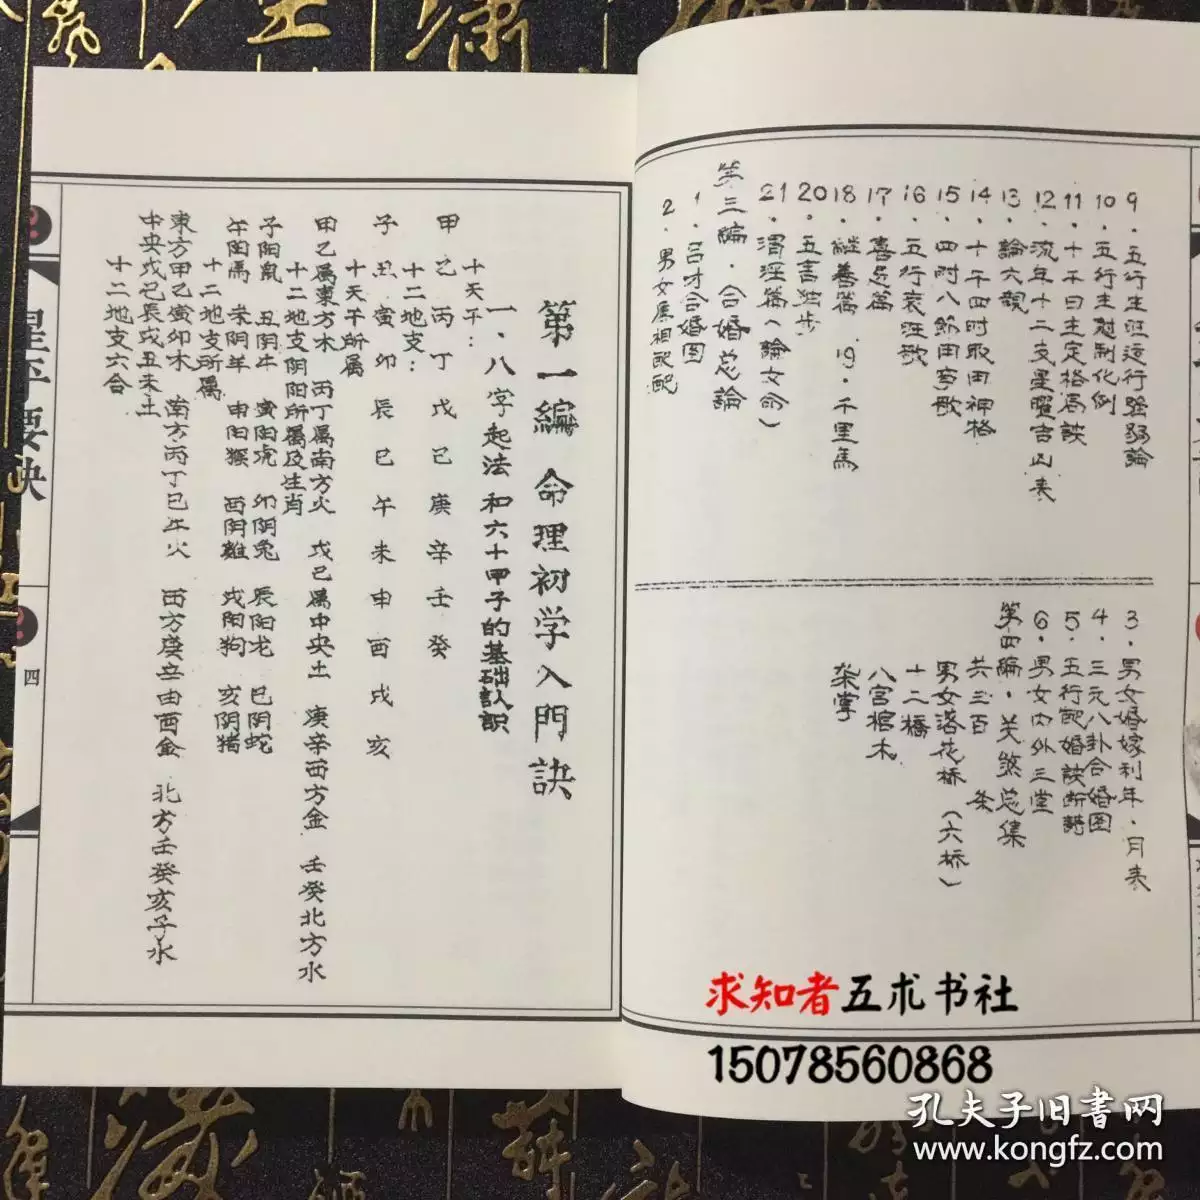 9．五行生旺运行强弱論
10．五行生尅制化例
11．十干日主定格局訣
12．流年十二支星曜吉凶表
13．論六親
14．十干四时取用神格
15．四时八節用事歌
16．五行衰旺歌
17．喜忌篇
18．继善篇　19．千里馬
20．五言独步
21．渭泾篇（論女命）
第三編．合婚总論
1．吕才合婚图
2．男女属相配配
3．男女婚嫁利年．月表
4．三元八卦合婚图
5．五行配婚訣断語
6．男女内外三堂
第四編．关煞总集
共三百　条
男女落花桥（六桥）
十二橋
八宫棺木
架掌
第一編　命理初学入門訣
一．八字起法和六十甲子的基础认识
十天干：
甲　乙　丙　丁　戊　己　庚　辛　壬　癸
十二地支：
子　丑　寅　卯　辰　巳　午　未　申　酉　戌　亥
十天干所属
甲乙属東方木　丙丁属南方火　戊己属中央土　庚辛西方金　壬癸北方水
十二地支阴阳所属及生肖
子阳鼠　丑阴牛　寅阳虎　卯阴兔　辰阳龙　巳阴蛇
午阳馬　未阴羊　申阳猴　酉阴雞　戌阳狗　亥阴猪
十二地支所属
東方甲乙寅卯木　南方丙丁巳午火　西方庚辛申酉金　北方壬癸亥子水
中央戊己辰戌丑未土
十二地支六合
星平要訣
四
求知者五术书社
15078560868
孔夫子旧書网
www.kongfz.com